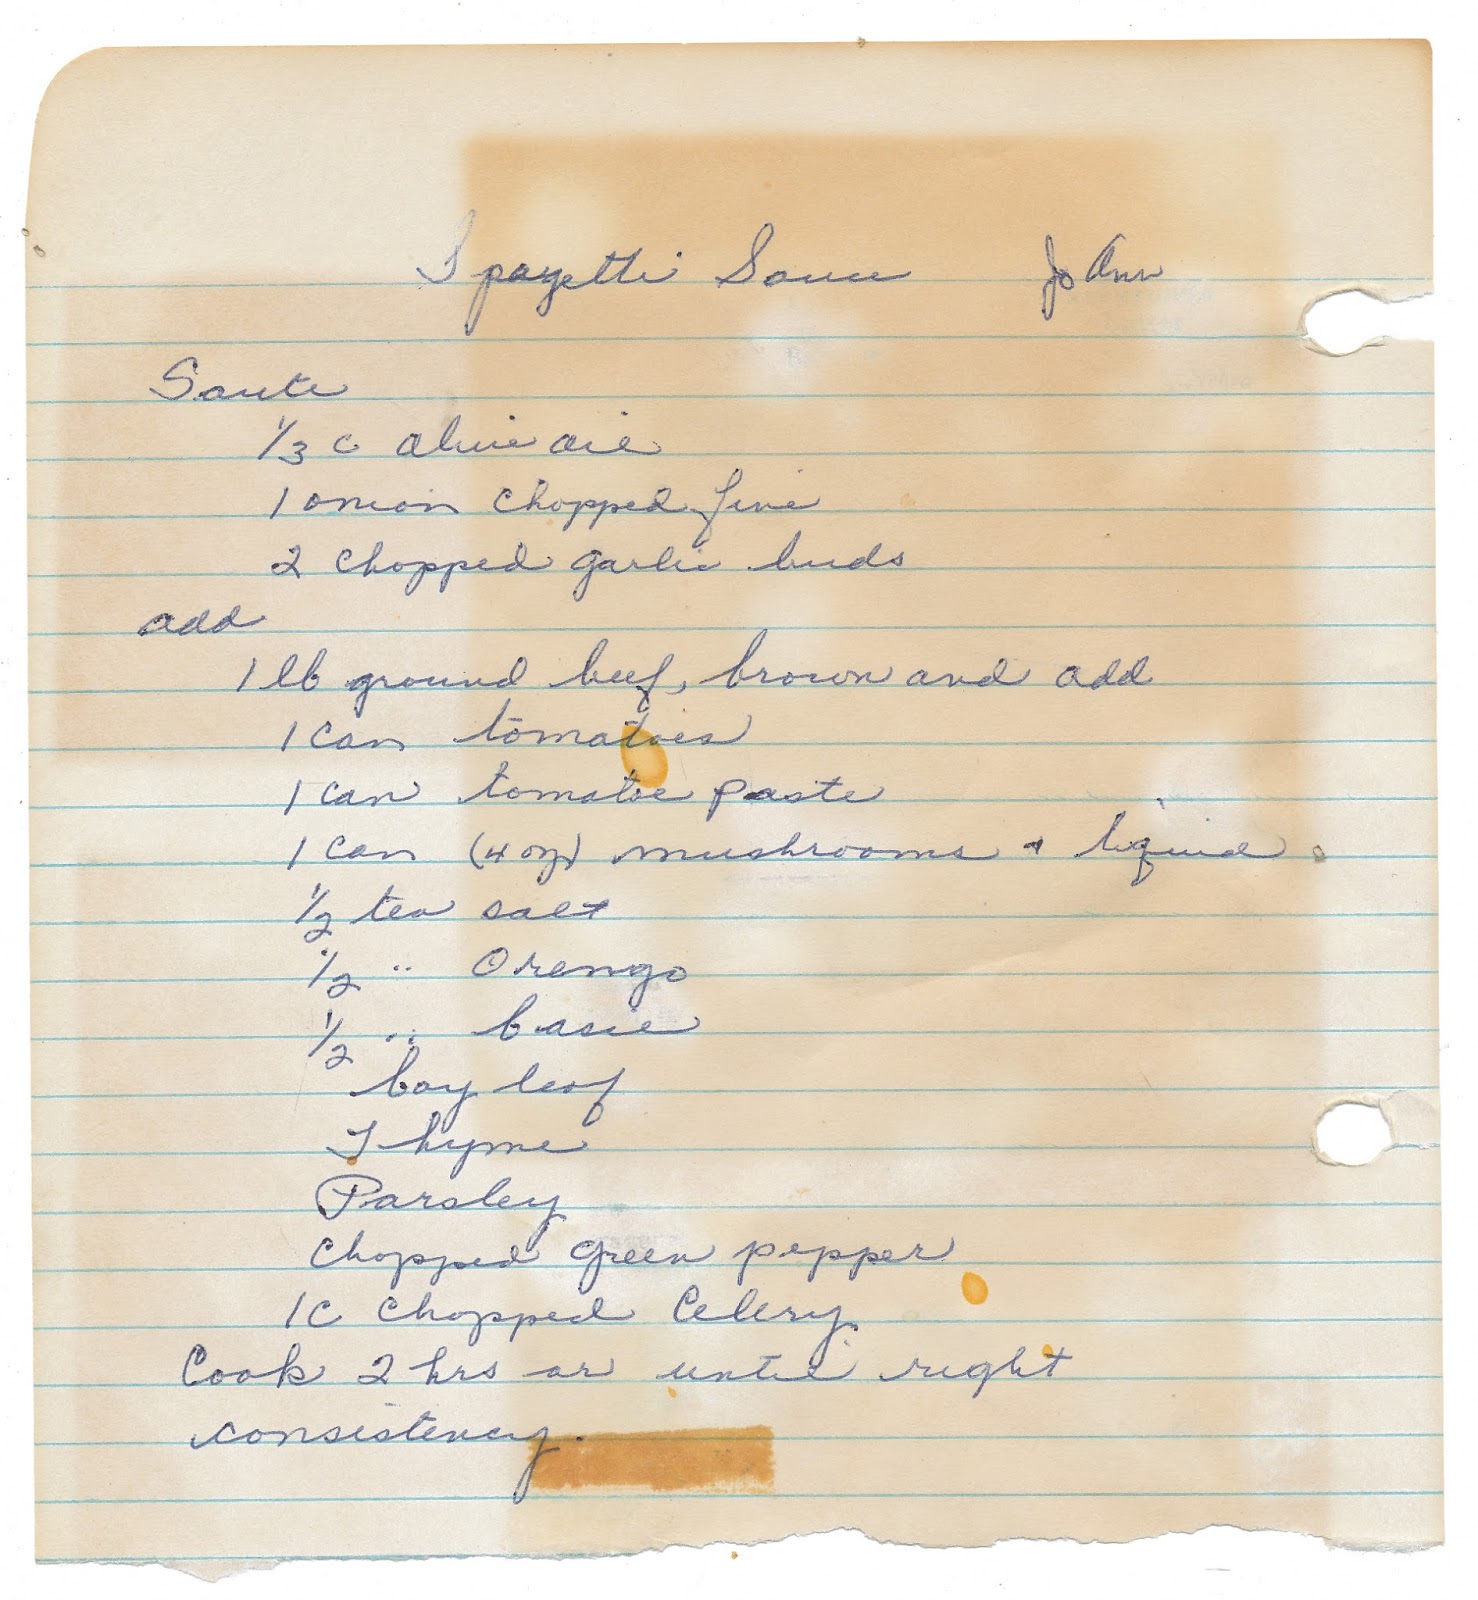 Spagetti Sauce Jo Ann
Saute
1/3 c olive oil
1 onion chopped fine
2 chopped garlic buds
add
1 lb ground beef, brown and add
1 can tomatoes
1 can tomatoe paste
1 can (4 oz) mushrooms + liquid
1/2 tea salt
1/2 " Orengo
1/2 " basil
bay leaf
Thyme
Parsley
Chopped green pepper
1 C chopped Celery
Cook 2 hrs or until right
consistency.